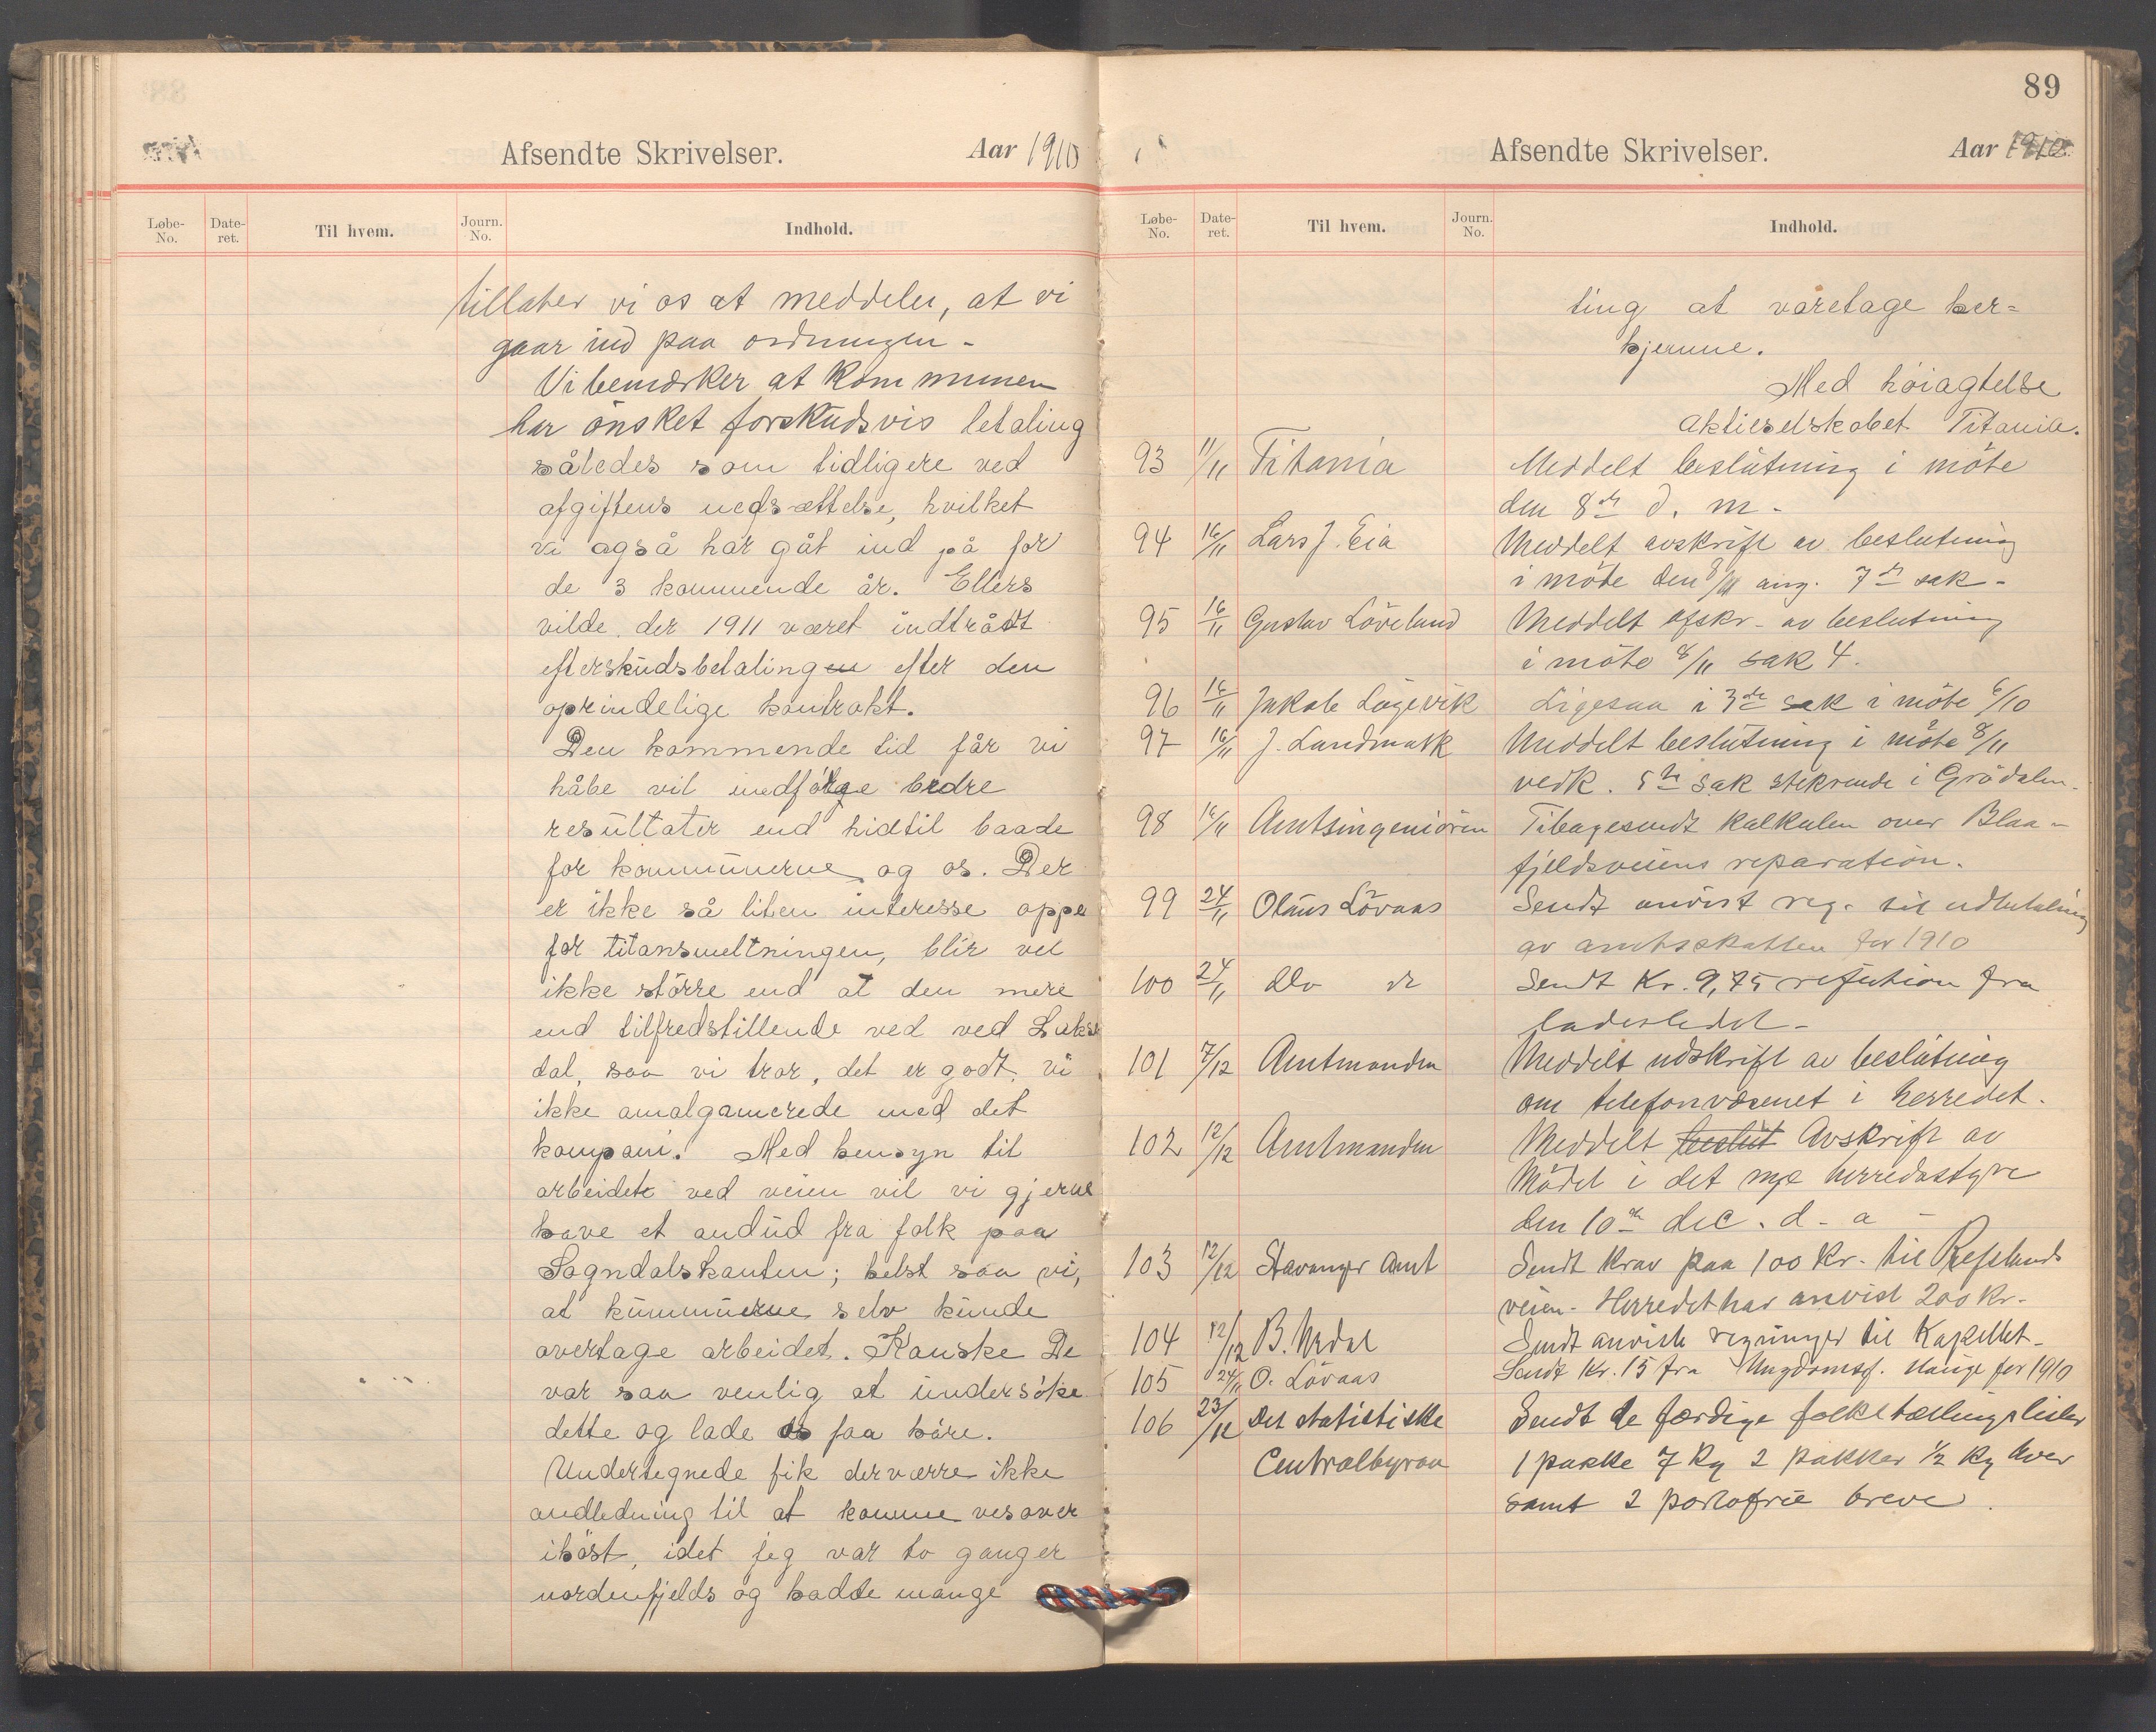 Afsendte Skrivelser. Aar 1910
Løbe-No. Date-ret. Til hvem. Journ. No. Indhold.
tillater vi os at meddeler, at vi
gaar ind paa ordningen -
Vi bemærker at Kommunen
har ønsket forskudsvis betaling
således som tidligere ved
afgiftens nedsættelse, hvilket
vi også har gåt ind på for
de 3 kommende år. Ellers
vilde der 1911 været indtrådt
efterskudsbetalingen efter den
oprindelige kontrakt.
Den kommende tid får vi
håbe vil medfølge bedre
resultater end hidtil baade
for kommunerne og os. Der
er ikke så liten interesse oppe
for titansmeltningen, blir vel
ikke större end at den mere
end tilfredstillende ved ved Lukse
dal, saa vi tror, det er godt, vi
ikke amalgamerede med det
kompani. Med hensyn til
arbeidet ved veien vil vi gjerne
have et anbud fra folk paa
Sogndalskanten; helst saa vi,
at kummunerne selv kunde
overtage arbeidet. Kanske De
var saa venlig at undersöke
dette og lade os faa höre.
Undertegnede fik derværre ikke
andledning til at komme vesover
ihöst, idet jeg var to ganger
nordenfjelds og hadde mange
89
Afsendte Skrivelser. Aar 1910
Løbe-No. Date-ret. Til hvem. Journ. No. Indhold.
ting at varetage her=
hjemme.
Med höiagtelse
Aktieselskabet Titania.
93 11/11 Titania Meddelt beslutning i möte
den 8de d. m.-
94 16/11 Lars J. Eia Meddelt avskrift av beslutning
i möte den 8/11 ang. 7de sak -
95 16/11 Gustav Löveland Meddelt afskr- av beslutning
i möte 8/11 sak 4.
96 16/11 Jakob Lögevik Ligesaa i 3de sak i möte 6/10
97 16/11 J. Landmark Meddelt beslutning i möte 8/11
vedk. 5te sak stekrende i Grödalen.
98 16/11 Amtsingeniören Tibagesendt kalkulen over Blaa-
fjeldsveiens reparation.
99 24/11 Olaus Lövaas Sendt anvist reg. til udbetaling
av amtsskatten for 1910
100 24/11 do do Sendt Kr. 9,75 refution fra
ladestedet -
101 7/12 Amtmanden Meddelt udskrift av beslutning
om telefonvæsenet i herredet.
102 12/12 Amtmanden Meddelt beslut Avskrift av
Mödet i det nye herredsstyre
den 10de dec. d- a -
103 12/12 Stavanger Amt Sendt krav paa 100 Kr. til Refslands
veien - Herredet har anvist 200 kr-
104 12/12 B. Urdal Sendt anviste regninger til Kapellet -
105 24/11 O. Lövaas Sendt Kr. 15 fra Ungdomsf. Hauge for 1910
106 23/12 Det statistiske Sendt de færdige folketællingslister
Centralbyraa 1 pakke 7 kg 2 pakker 1/2 kg hver
samt 2 portofrie breve.